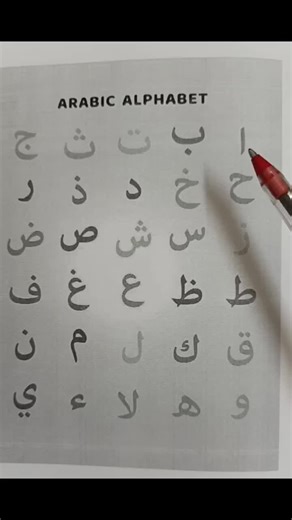 ARABIC ALPHABET
ا ب ت ث ج
ح خ د ذ ر
ز س ش ص ض
ط ظ ع غ ف
ق ك ل م ن
و ه لا ء ي